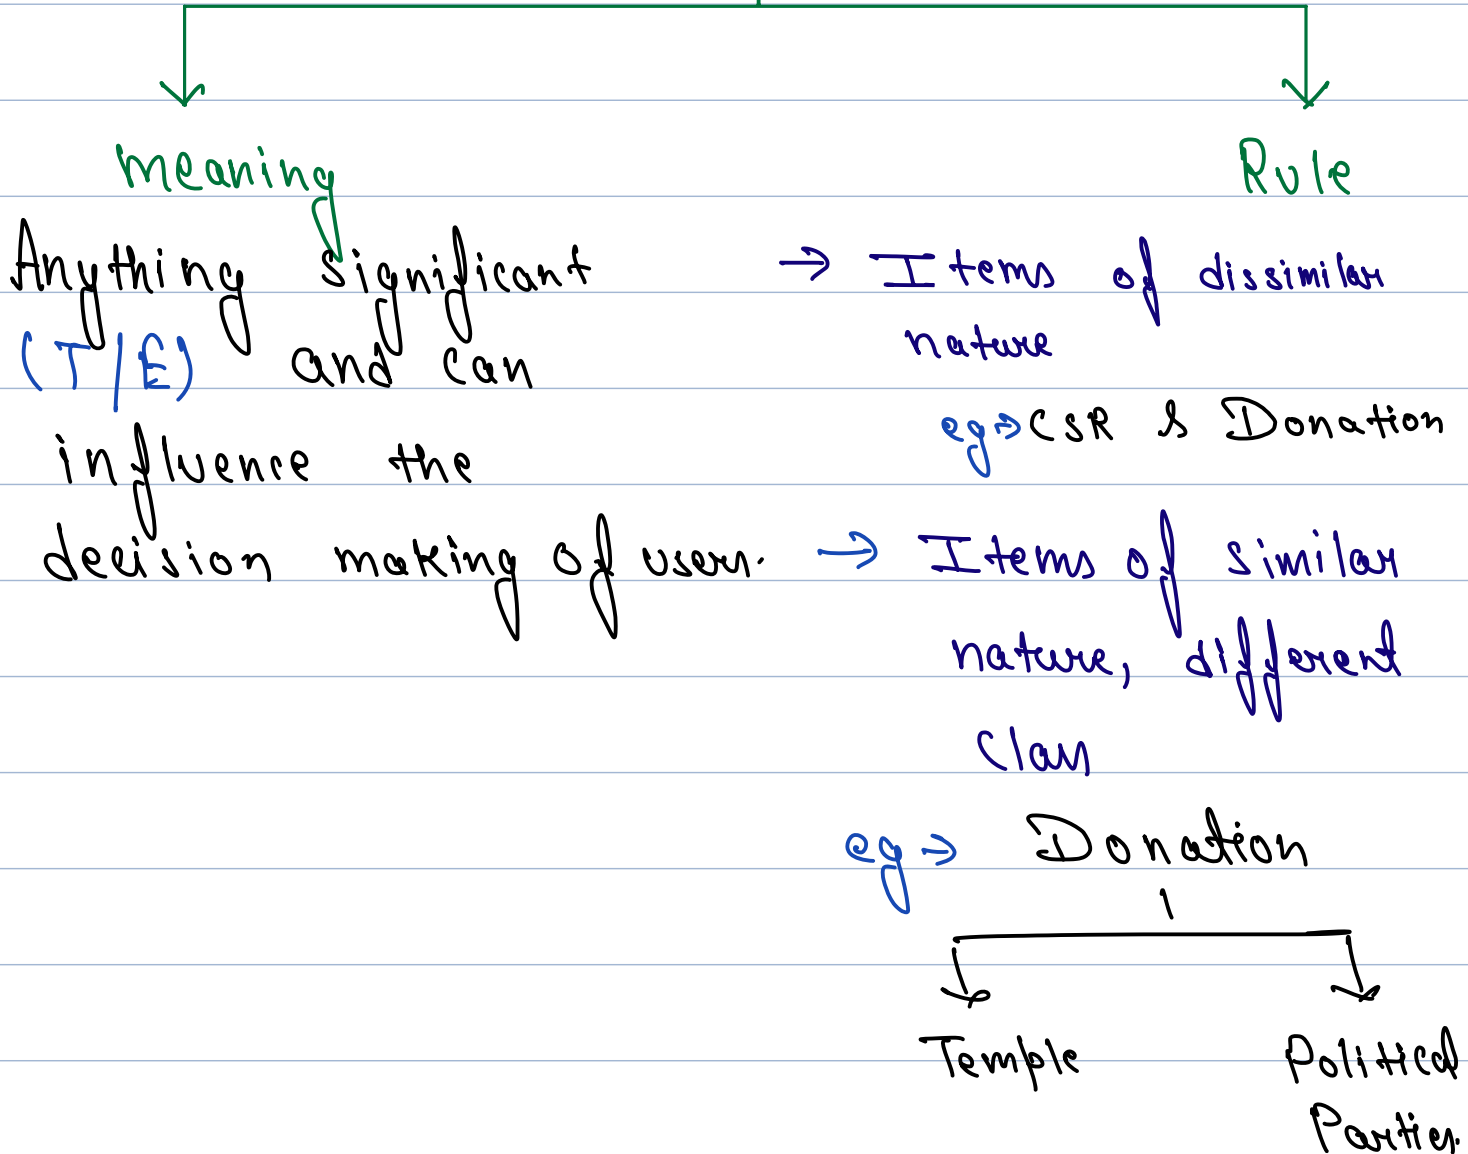 meaning
Anything significant
(T/E) and can
influence the
decision making of users.
Rule
→ Items of dissimilar
nature
eg→ CSR & Donation
→ Items of similar
nature, different
class
eg → Donation
Temple
Political
Parties.